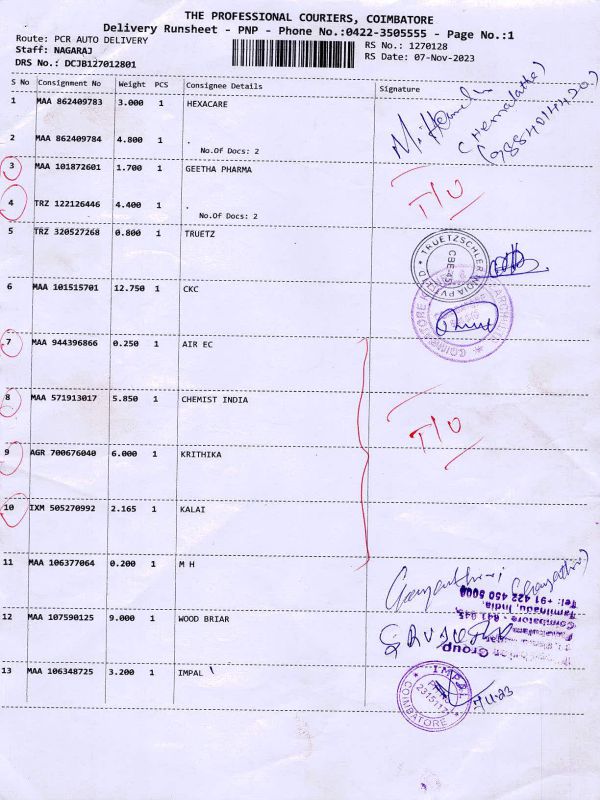 THE PROFESSIONAL COURIERS, COIMBATORE
Delivery Runsheet - PNP - Phone No.:0422-3505555 - Page No.:1
Route: PCR AUTO DELIVERY
RS No.: 1270128
Staff: NAGARAJ
RS Date: 07-Nov-2023
DRS No.: DCJB127012801
S No Consignment No Weight PCS Consignee Details Signature
1 MAA 862409783 3.000 1 HEXACARE
M. Hemalatha
(Hemalatha)
2 MAA 862409784 4.800 1 .
No.Of Docs: 2
3 MAA 101872601 1.700 1 GEETHA PHARMA
T/O
4 TRZ 122126446 4.400 1 .
No.Of Docs: 2
5 TRZ 320527268 0.800 1 TRUETZ
TRUETZSCHLER INDIA PVT LTD
CBE-45
6 MAA 101515701 12.750 1 CKC
COIMBATORE
7 MAA 944396866 0.250 1 AIR EC
8 MAA 571913017 5.850 1 CHEMIST INDIA
T/O
9 AGR 700676040 6.000 1 KRITHIKA
10 IXM 505270992 2.165 1 KALAI
11 MAA 106377064 0.200 1 M H
Gayathri (Gayathri)
12 MAA 107590125 9.000 1 WOOD BRIAR
Group
Coimbatore - 641 045,
Tamilnadu, India.
Tel: +91 422 450 8000
13 MAA 106348725 3.200 1 IMPAL
IMPAL
COIMBATORE
7/11/23